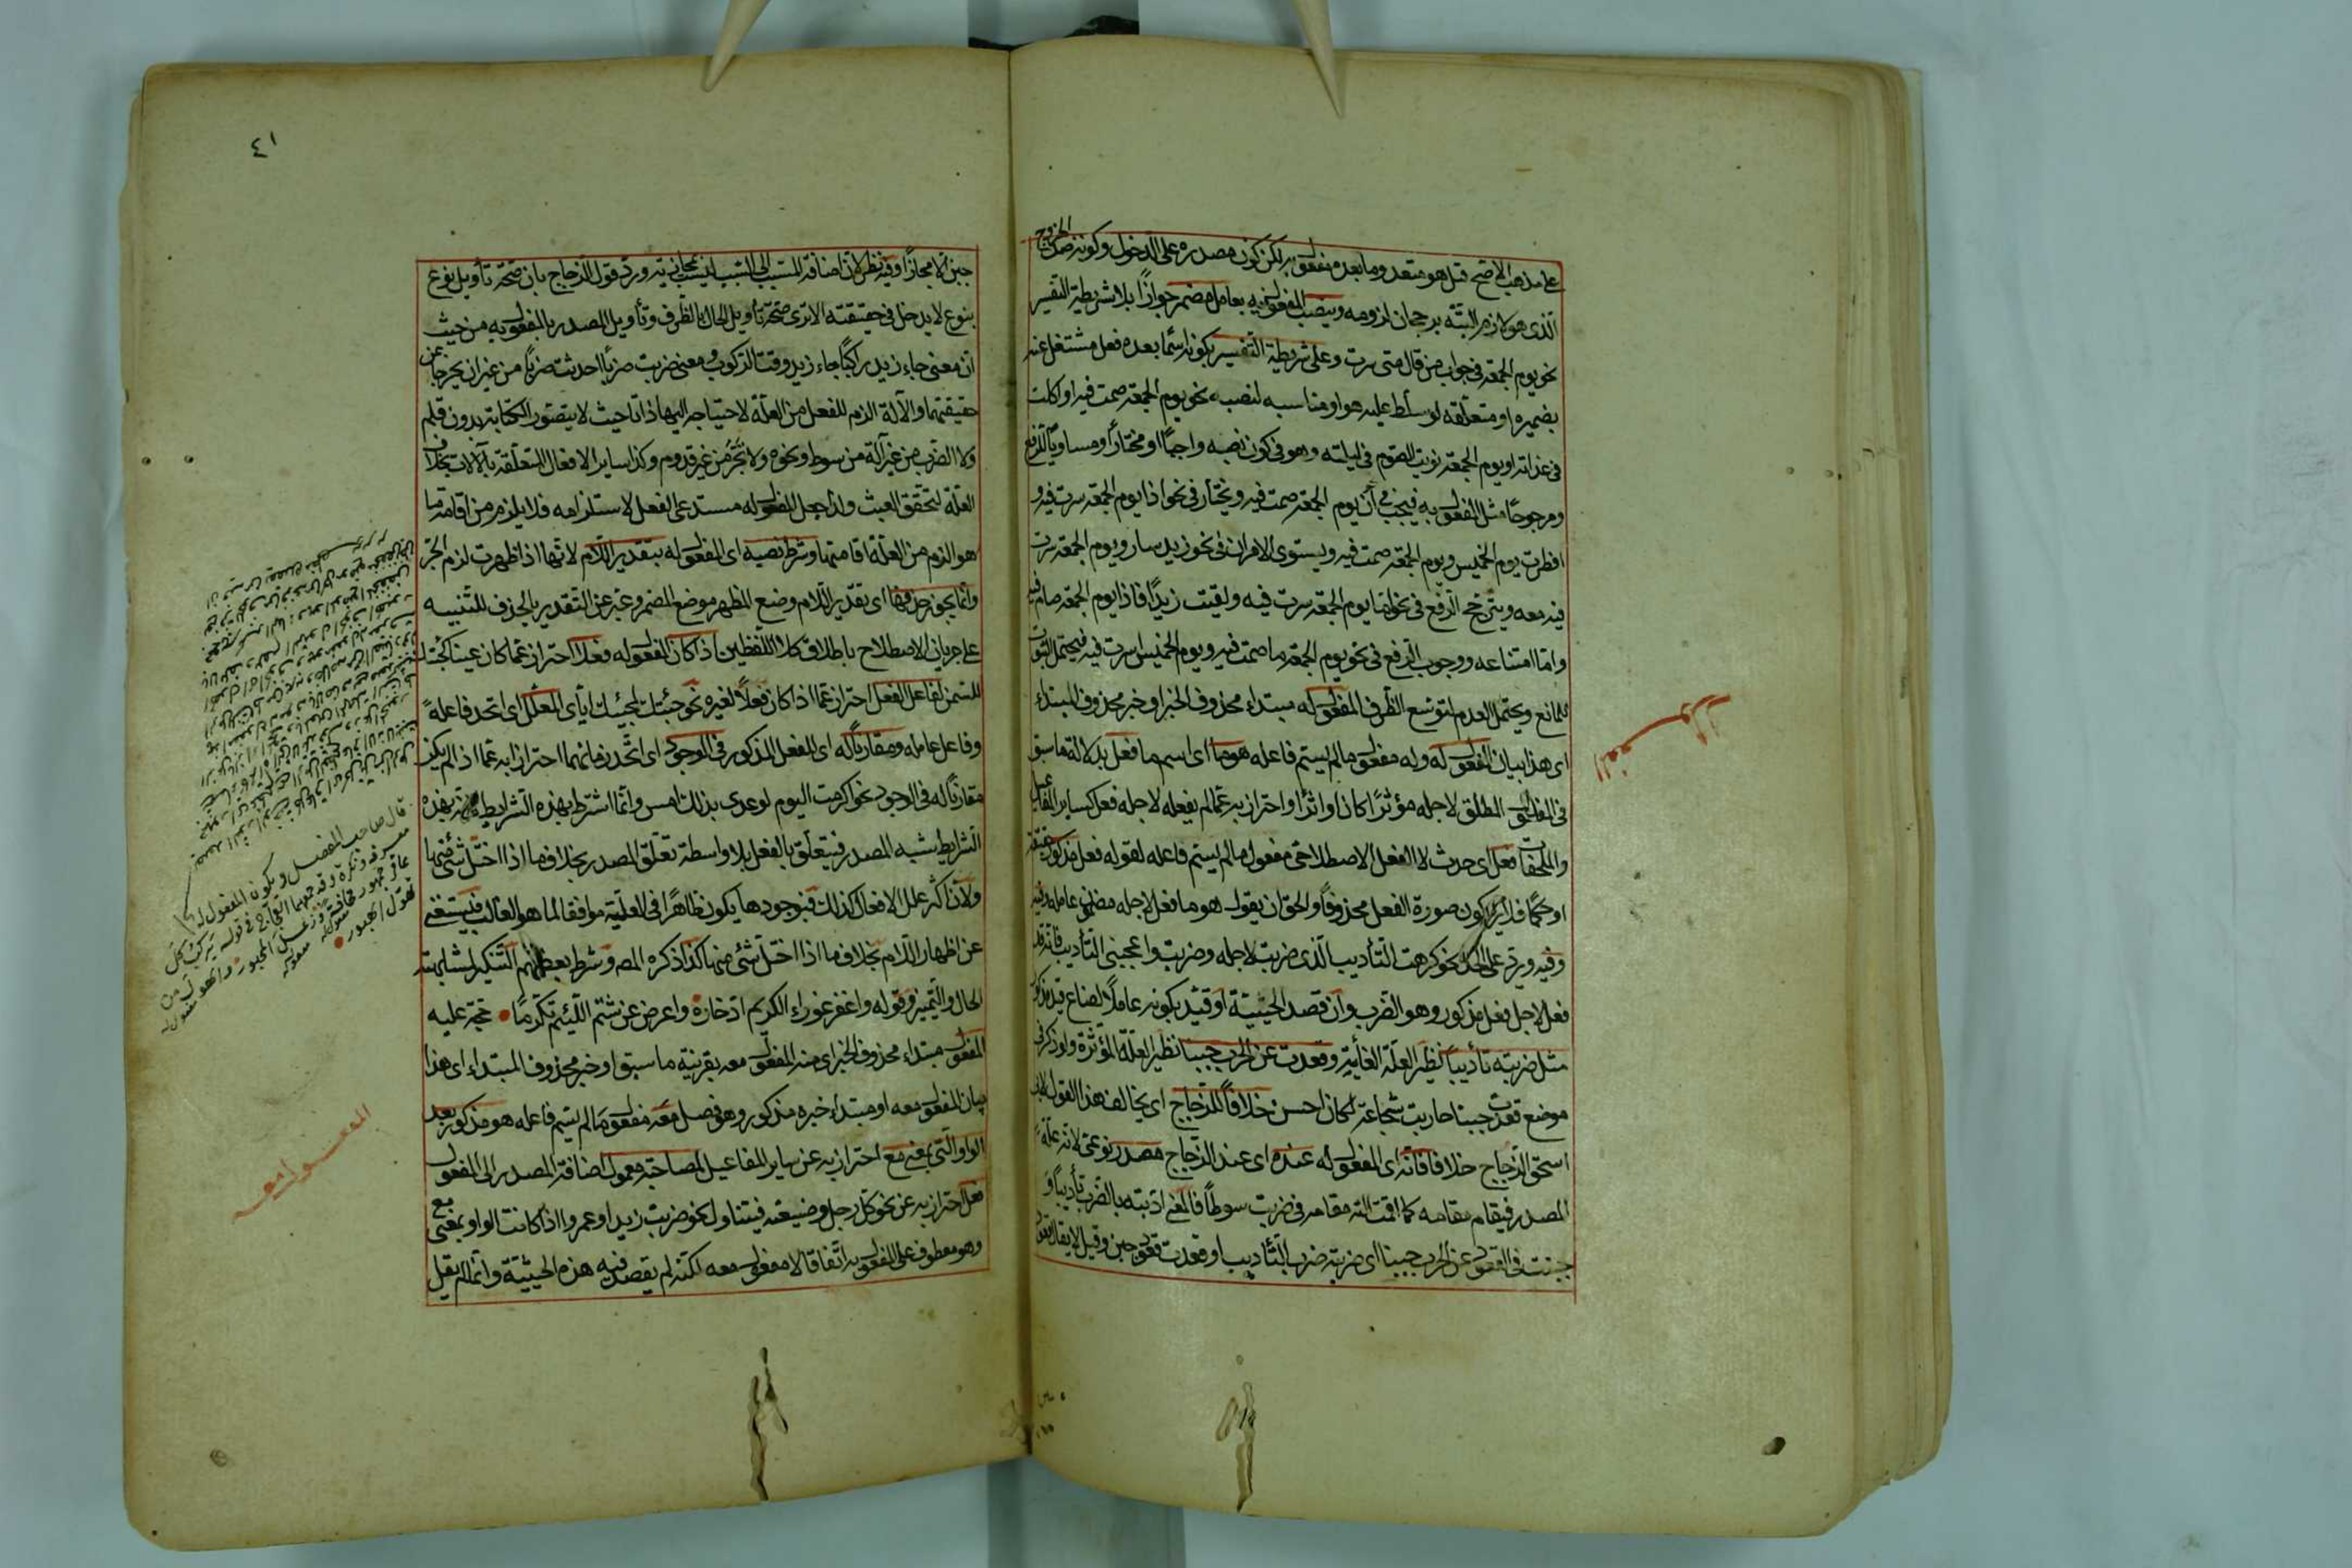 على مذهب الاصح قيل هو متعد وما بعده مفعول به لكن كون مصدره على الدخول وكونه ضد الخروج
الذى هو لازم البتّه يرجحان لزومه وينصب المفعول فيه بعامل مضمر جوازًا بلا شريطة التفسير
نحو يوم الجمعة فى جواب من قال متى سرت وعلى شريطة التفسير بكونه اسمًا بعده فعل مشتغل عنه
بضميره او متعلّقه لو سلّط عليه هو او مناسبه لنصبه نحو يوم الجمعة صمت فيه او اكلت
فى غداته او يوم الجمعة نويت الصّوم فى ليلته وهو فى كون نصبه واجبًا او مختارًا او مساويًا للرفع
ومرجوحًا مثل المفعول به فيجب فى أن يوم الجمعة صمت فيه ويختار فى نحو اذا يوم الجمعة سرت فيه و
افطرت يوم الخميس ويوم الجمعة صمت فيه ويستوى الامران فى نحو زيد سار ويوم الجمعة سرت
فيه معه ويترجّح الرّفع فى نحو امّا يوم الجمعة سرت فيه ولقيت زيدًا فاذا يوم الجمعة صام فيه
وامّا امتناعه ووجوب الرّفع فى نحو يوم الجمعة ما صمت فيه ويوم الخميس اسرت فيه فيحتمل الثبوت
للمانع ويحتمل العدم لتوسّع الظّرف المفعول له مبتداء محذوف الخبر او خبر محذوف المبتداء
اى هذا بيان المفعول له وله مفعول مالم يسمّ فاعله هو ما اى اسم ما فعل بدلالة ما سبق
فى المفعول المطلق لاجله مؤثرًا كان او اثرًا واحترز به عمّا لم يفعله لاجله فعل كساير المفاعيل
والملحقات فعل اى حدث لا الفعل الاصطلاحى مفعول مالم يسمّ فاعله لقوله فعل مذكور حقيقة
او حكمًا فلا يراد كون صورة الفعل محذوفًا والحق ان يقول هو ما فعل لاجله مضمون عامله
وفيه ويرد على الحدّ نحو كرهت التّأديب الّذى ضربت لاجله وضربت واعجبنى التّأديب فانّه قد
فعل لاجل فعل مذكور وهو الضّرب وان قصد الحيثيّة او قيّد بكونه عاملًا لضاع قيد مذكور
مثل ضربته تأديبًا نظير العلّة الغائية وقعدت عن الحرب جبنًا نظير العلّة المؤثرة ولو ذكر فى
موضع قعدت جبنا حاربت شجاعة لكان احسن خلافًا للزجاج اى يخالف هذا القول
اسحق الزجاج خلافا فانّه اى المفعول له عنده اى عند الزجاج مصدر نوعى لانّه علّة
المصدر فيقام مقامه كما اقمت الته مقامه فى ضربت سوطًا فالمعنى ادّبته بالضّرب تأديبًا و
جبنت فى القعود عن الحرب جبنا اى ضربته ضرب التّأديب او قعدت قعود جبن وقيل لا يقال قعود
المفعول له
٤١
جبن الّا مجازًا وفيه نظر لان اضافة المسبّب الى السّبب ليست مجازية ورد قول الزجاج بان صحّة تأويل نوع
بنوع لا يدخل فى حقيقته الا ترى صحّة تأويل الحال بالظّرف وتأويل المصدر بالمفعول به من حيث
ان معنى جاء زيد راكبًا جاء زيد وقت الركوب ومعنى ضربت ضربًا احدثت ضربًا من غير ان يخرجا عن
حقيقتهما والآلة الزم للفعل من العلّة لاحتياجه اليها ذاتا حيث لا يتصوّر الكتابة بدون قلم
ولا الضّرب من غير آلة من سوط ونحوه ولا نَجْرٌ من غير قدوم وكذا ساير الافعال المتعلّقة بالآلات بخلاف
العلّة لتحقّق العبث ولذا جعل المفعول له مستدعى الفعل لاستلزامه فلا يلزم من اقامة ما
هو الزم من العلّة اقامتها وشرط نصبه اى المفعول له بتقدير اللّام لانّها اذا ظهرت لزم الجرّ
وانّما يجوز حذفها اى تقدير اللّام وضع المظهر موضع المضمر وعبّر عن التقدير بالحذف للتنبيه
على جريان الاصطلاح باطلاق كلا اللفظين اذا كان المفعول له فعلًا احتراز عمّا كان عينا كجئتك
للسّمن لفاعل الفعل احتراز عمّا اذا كان فعلًا لغيره نحو جئتك لمجيئك ايّاى المعلّل اى اتّحد فاعله
وفاعل عامله ومقارنًا له اى للفعل المذكور فى الوجود اى اتّحد زمانهما احتراز به عمّا اذا لم يكن
مقارنًا له فى الوجود نحو اكرمت اليوم لوعدى بذلك امس وانّما اشترط بهذه الشّرايط لانه بهذه
الشّرايط يشبه المصدر فيتعلّق بالفعل بلا واسطة تعلّق المصدر بخلاف ما اذا اختلّ شئ منها
ولان اكثر علل الافعال كذلك فبوجودها يكون ظاهرًا فى العلّية موافقا لما هو الغالب فيستغنى
عن اظهار اللّام بخلاف ما اذا اختلّ شئ منها كذا ذكره المص وشرط بعضهم التّنكير لمشابهته
الحال والتّميز وقوله واغفر عوراء الكريم ادّخاره واعرض عن شتم اللّئيم تكرّمًا حجّة عليه
المفعول مبتداء محذوف الخبر اى منه المفعول معه بقرينة ما سبق او خبر محذوف المبتداء اى هذا
بيان المفعول معه او مبتداء خبره مذكور وهو فصل معه مفعول مالم يسمّ فاعله هو مذكور بعد
الواو الّتى بمعنى مع احتراز به عن ساير المفاعيل لمصاحبة معمول اضافة المصدر الى المفعول
فعل احتراز به عن نحو كلّ رجل وضيعته فيتناول نحو ضربت زيدا وعمروا اذا كانت الواو بمعنى مع
وهو معطوف على المفعول به اتّفاقا لا مفعول معه لكنّه لم يقصد فيه هذه الحيثيّة وانّما لم يقل
قال صاحب المفصل ويكون المفعول له
معرفة ونكرة وقد جمعهما العجّاج فى قوله يركب كلّ
عاقر جمهور مخافة وزعل المحبور والهول من
تهوّل الهبور
المفعول معه